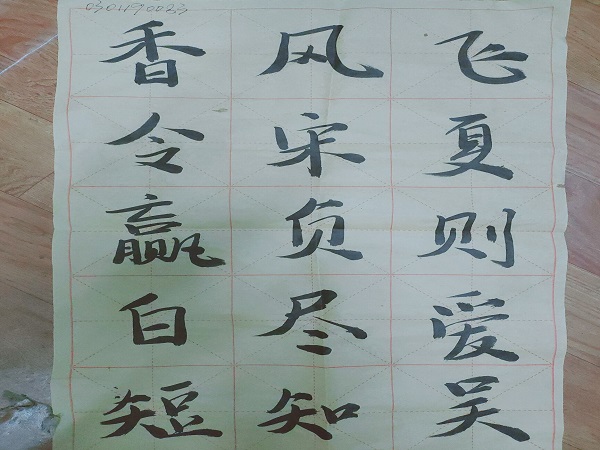 0301190023
香风飞
令宋夏
赢负则
白尽爱
短知吴